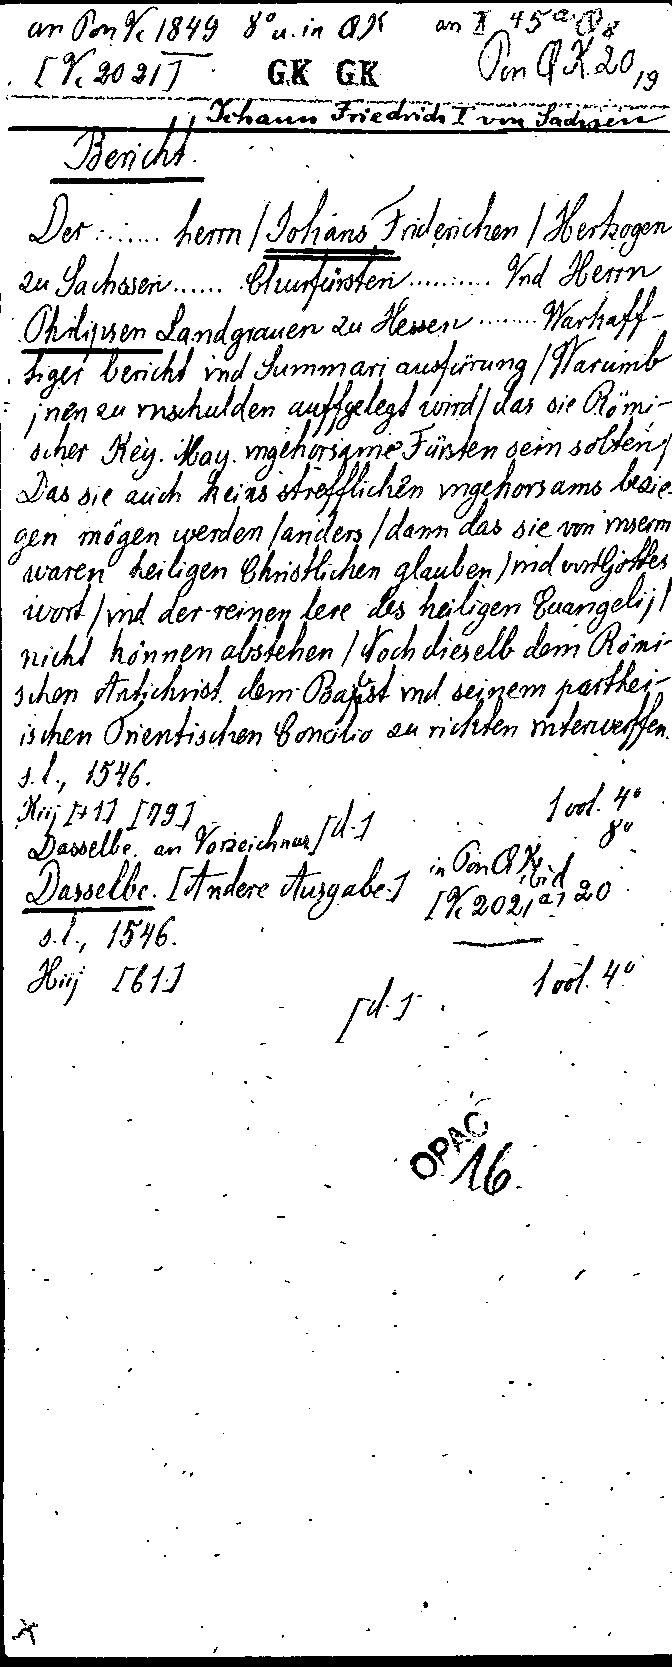 an Pon Vc 1849 8° u. in QK an 45a
[Vc 2021] GK GK Pon QK 20,19
Johann Friedrich I von Sachsen
Bericht.
Der ....... herrn / Johans Friderichen / Hertzogen
zu Sachssen ...... Churfürsten .......... Vnd Herrn
Philipsen Landgrauen zu Hessen ........ Warhaff-
tiger bericht vnd Summari ausfürung / Warumb
jnen zu vnschulden auffgelegt wird / das sie Römi-
scher Key. May. vngehorsame Fürsten sein solten /
Das sie auch keins strefflichen vngehorsams bezie-
gen mögen werden / anders / dann das sie von vnserm
waren heiligen Christlichen glauben / vnd von Gottes
wort / vnd der reinen lere des heiligen Euangelij /
nicht können abstehen / Noch dieselb dem Römi-
schen Antichrist dem Bapst vnd seinem parthei-
ischen Trientischen Concilio zu richten vnterwerffen.
s.l., 1546.
Kiij [+1] [79] 1 vol. 4°
Dasselbe. an Verzeichnus [d.] 8°
Dasselbe. [Andere Ausgabe.] in Pon QK
ibid
[Vc 2021 a] 20
s.l., 1546.
Hiij [61.] 1 vol. 4°
[d.]
OPAC
16